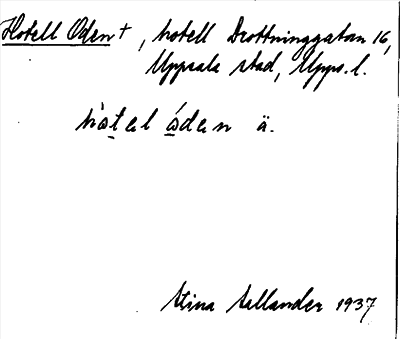 Hotell Oden +, hotell Drottninggatan 16,
Uppsala stad, Upps. l.
hòtel óden ä.
Stina Sellander 1937